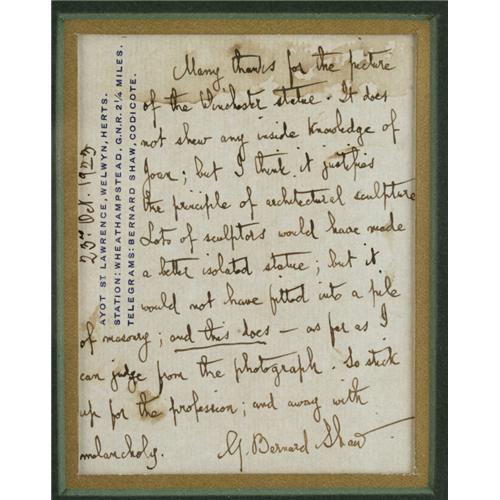 AYOT ST LAWRENCE, WELWYN, HERTS.
STATION: WHEATHAMPSTEAD, G.N.R. 2¼ MILES.
TELEGRAMS: BERNARD SHAW, CODICOTE.
23rd Oct. 1923
Many thanks for the picture
of the Winchester statue. It does
not shew any inside knowledge of
Joan; but I think it justifies
the principle of architectural sculpture
Lots of sculptors would have made
a better isolated statue; but it
would not have fitted into a pile
of masonry; and this does — as far as I
can judge from the photograph. So stick
up for the profession; and away with
melancholy.
G. Bernard Shaw